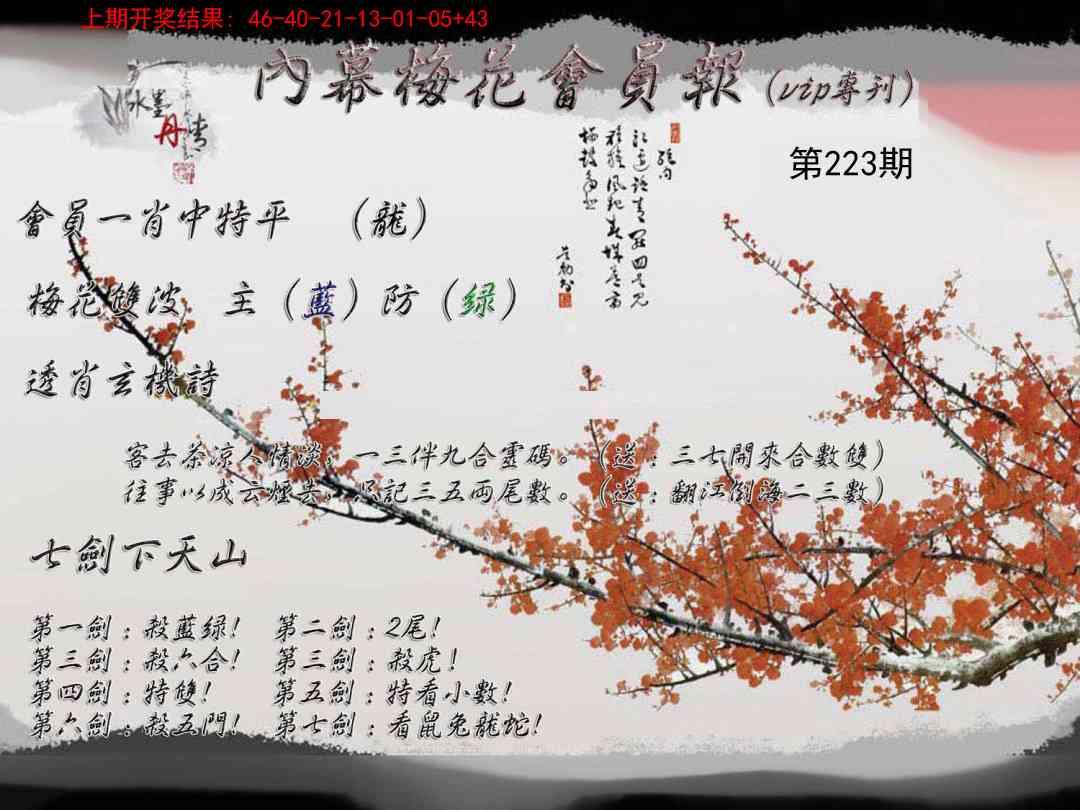 上期开奖结果: 46-40-21-13-01-05+43
內幕梅花會員報(vip專刊)
水墨
丹青
第223期
會員一肖中特平 (龍)
梅花雙波 主(藍)防(绿)
透肖玄機詩
客去茶涼人情淡,一三伴九合靈碼。(送:三七開來合數雙)
往事以成云煙芸,忌記三五兩尾數。(送:翻江倒海二三數)
七劍下天山
第一劍:殺藍绿! 第二劍:2尾!
第三劍:殺六合! 第三劍:殺虎!
第四劍:特雙! 第五劍:特看小數!
第六劍:殺五門! 第七劍:看鼠兔龍蛇!